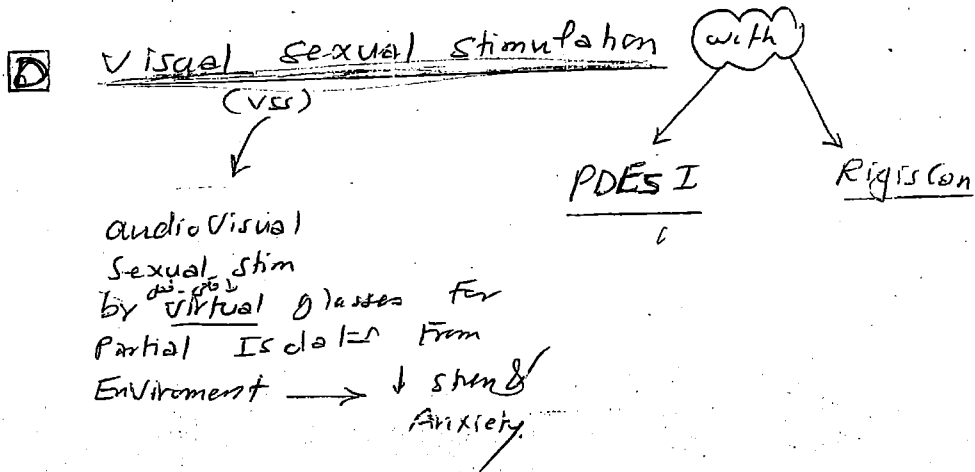 D Visual sexual stimulation with
(VSS)
PDE5 I Rigiscan
audioVisual
Sexual stim
by virtual glasses for
Partial From
Enviroment → ↓ &
Anxiety.